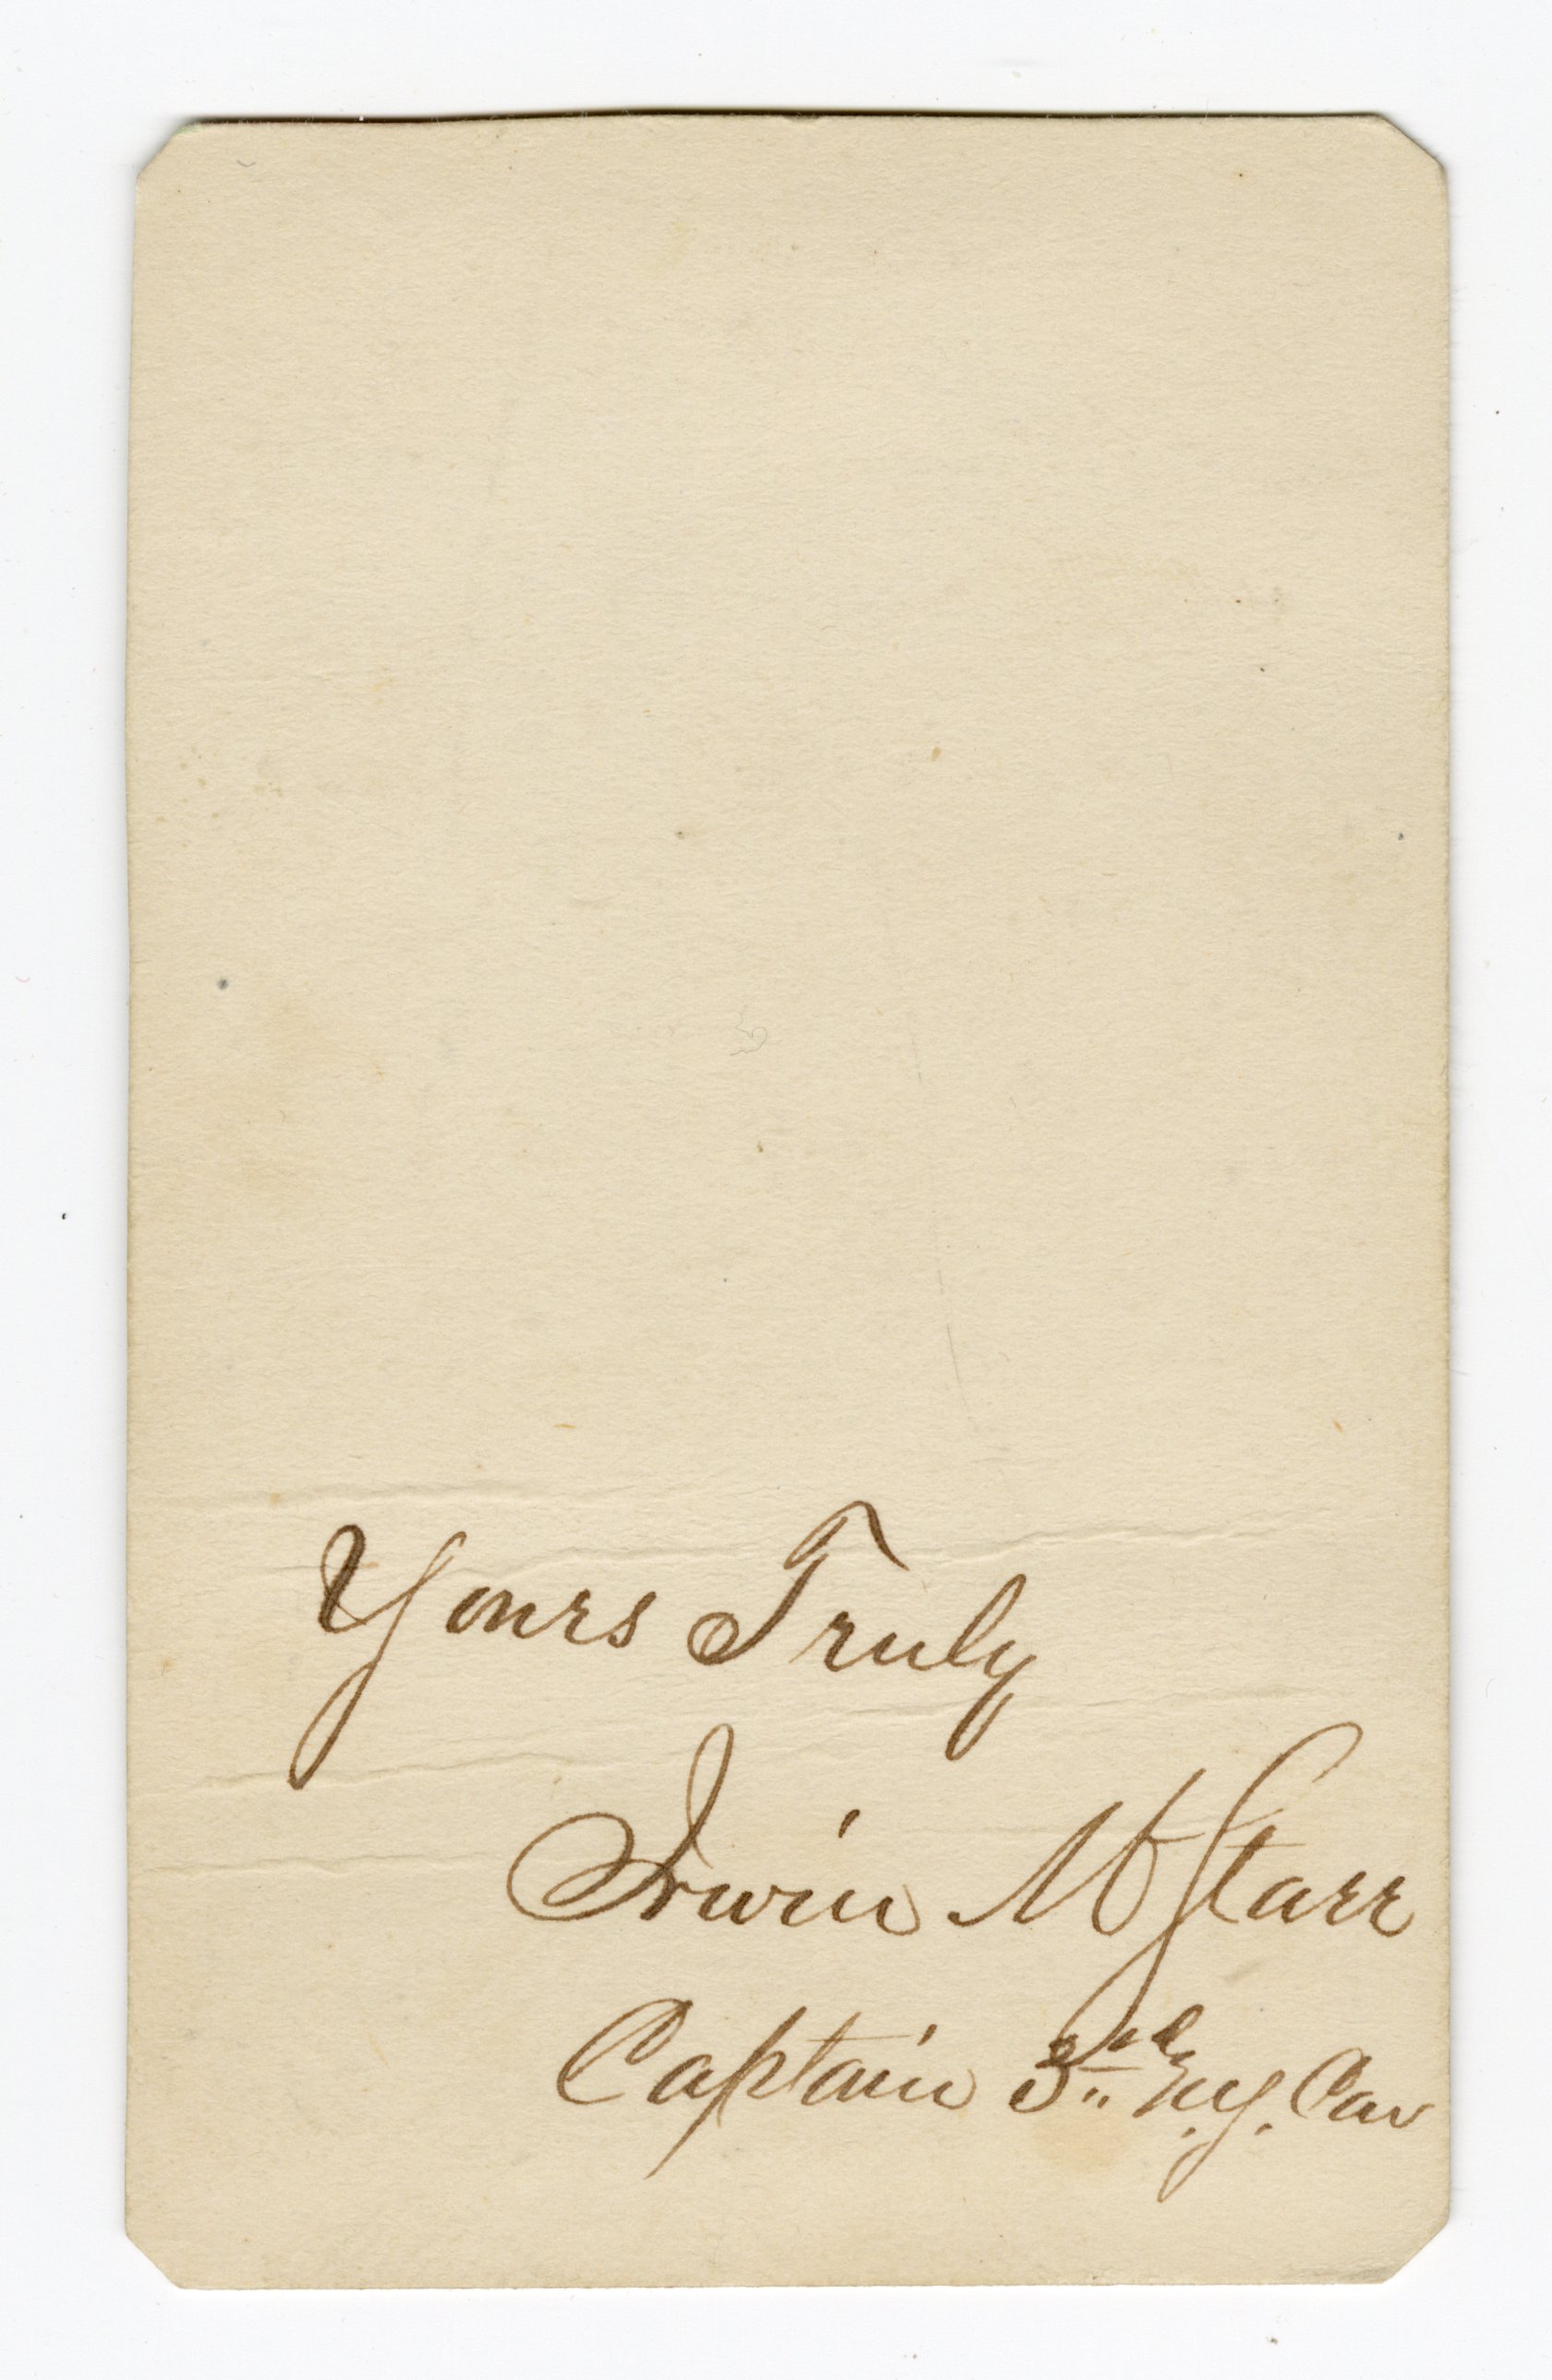 Yours Truly
Irwin M Starr
Captain 3rd N.Y. Cav